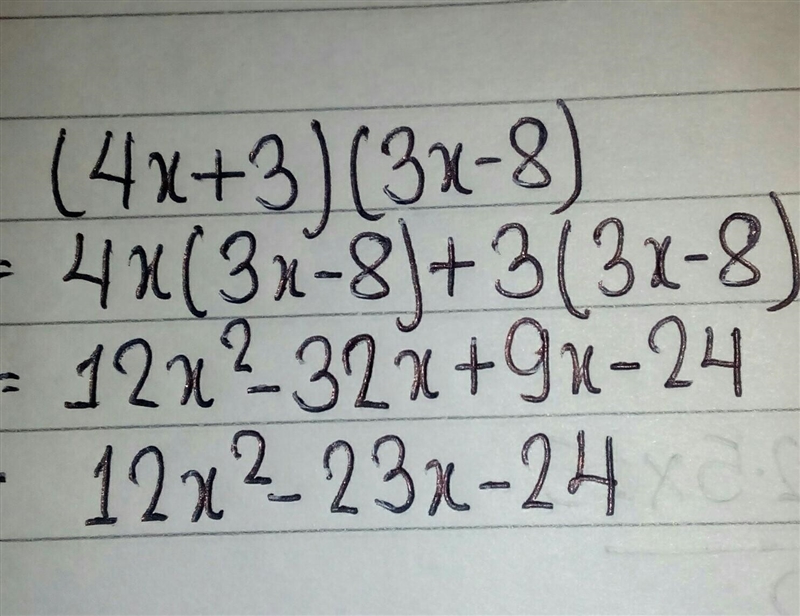 (4x+3)(3x-8)
= 4x(3x-8)+3(3x-8)
= 12x²-32x+9x-24
12x²-23x-24